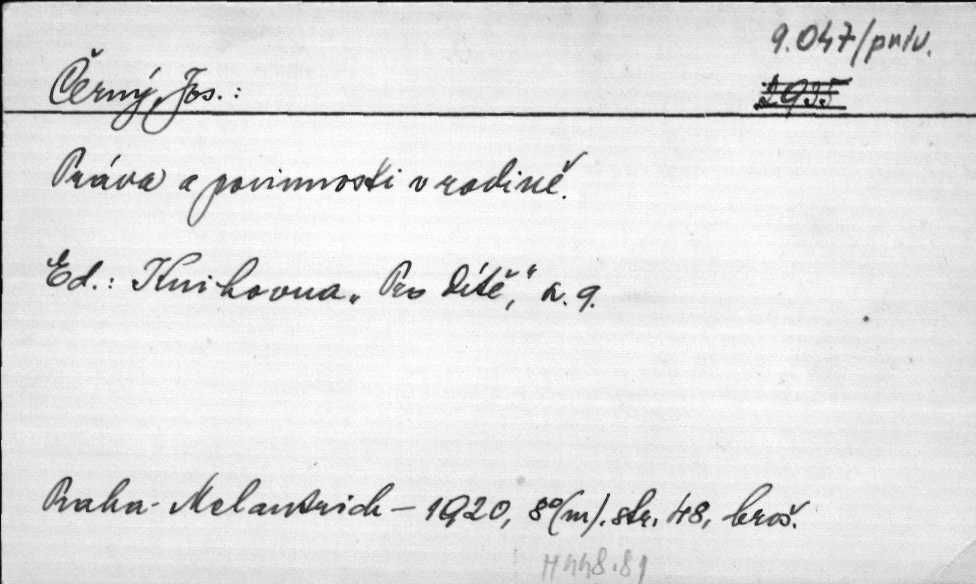 9.047/priv.
Černý, Jos.:
2935
Práva a povinnosti v rodině.
Ed.: Knihovna „Pro dítě,“ č. 9.
Praha - Melantrich - 1920, 8°(m). str. 48, brož.
H448.81